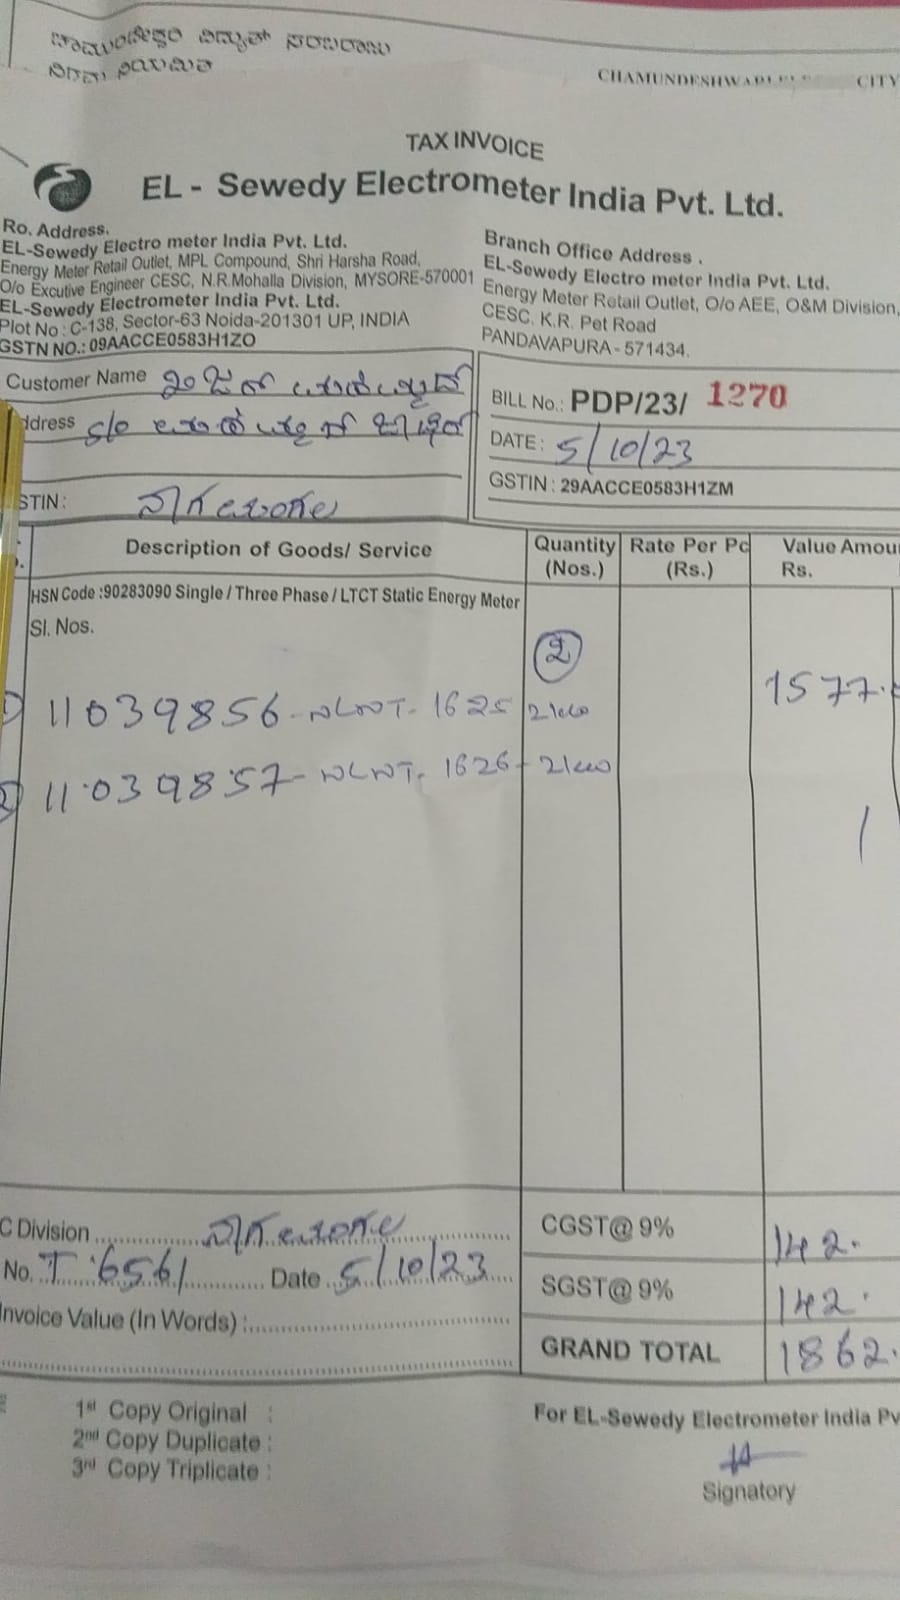 ಚಾಮುಂಡೇಶ್ವರಿ ವಿದ್ಯುತ್ ಸರಬರಾಜು
ನಿಗಮ ನಿಯಮಿತ
CHAMUNDESHWARI CITY
TAX INVOICE
EL - Sewedy Electrometer India Pvt. Ltd.
Ro. Address.
EL-Sewedy Electro meter India Pvt. Ltd.
Energy Meter Retail Outlet, MPL Compound, Shri Harsha Road,
O/o Excutive Engineer CESC, N.R.Mohalla Division, MYSORE-570001
EL-Sewedy Electrometer India Pvt. Ltd.
Plot No : C-138, Sector-63 Noida-201301 UP, INDIA
GSTN NO.: 09AACCE0583H1ZO
Branch Office Address .
EL-Sewedy Electro meter India Pvt. Ltd.
Energy Meter Retail Outlet, O/o AEE, O&M Division,
CESC. K.R. Pet Road
PANDAVAPURA - 571434.
Customer Name
ddress S/o
STIN: ನಾಗಮಂಗಲ
BILL No.: PDP/23/ 1270
DATE: 5/10/23
GSTIN : 29AACCE0583H1ZM
Description of Goods/ Service Quantity (Nos.) Rate Per Pc (Rs.) Value Amou Rs.
HSN Code :90283090 Single / Three Phase / LTCT Static Energy Meter
Sl. Nos.
2
1) 11039856 - NLNT - 1625 1577.
2) 11039857 - NLNT - 1626
C Division ನಾಗಮಂಗಲ
No. T 6561 Date 5/10/23
Invoice Value (In Words) :
CGST@ 9% 142.
SGST@ 9% 142.
GRAND TOTAL 1862.
1st Copy Original :
2nd Copy Duplicate :
3rd Copy Triplicate :
For EL-Sewedy Electrometer India Pv
Signatory